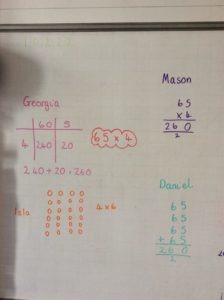 Georgia
60 5
4 240 20
240 + 20 = 260
65 x 4
Mason
65
x 4
260
2
Isla
4 x 6
Daniel
65
65
65
+ 65
260
2